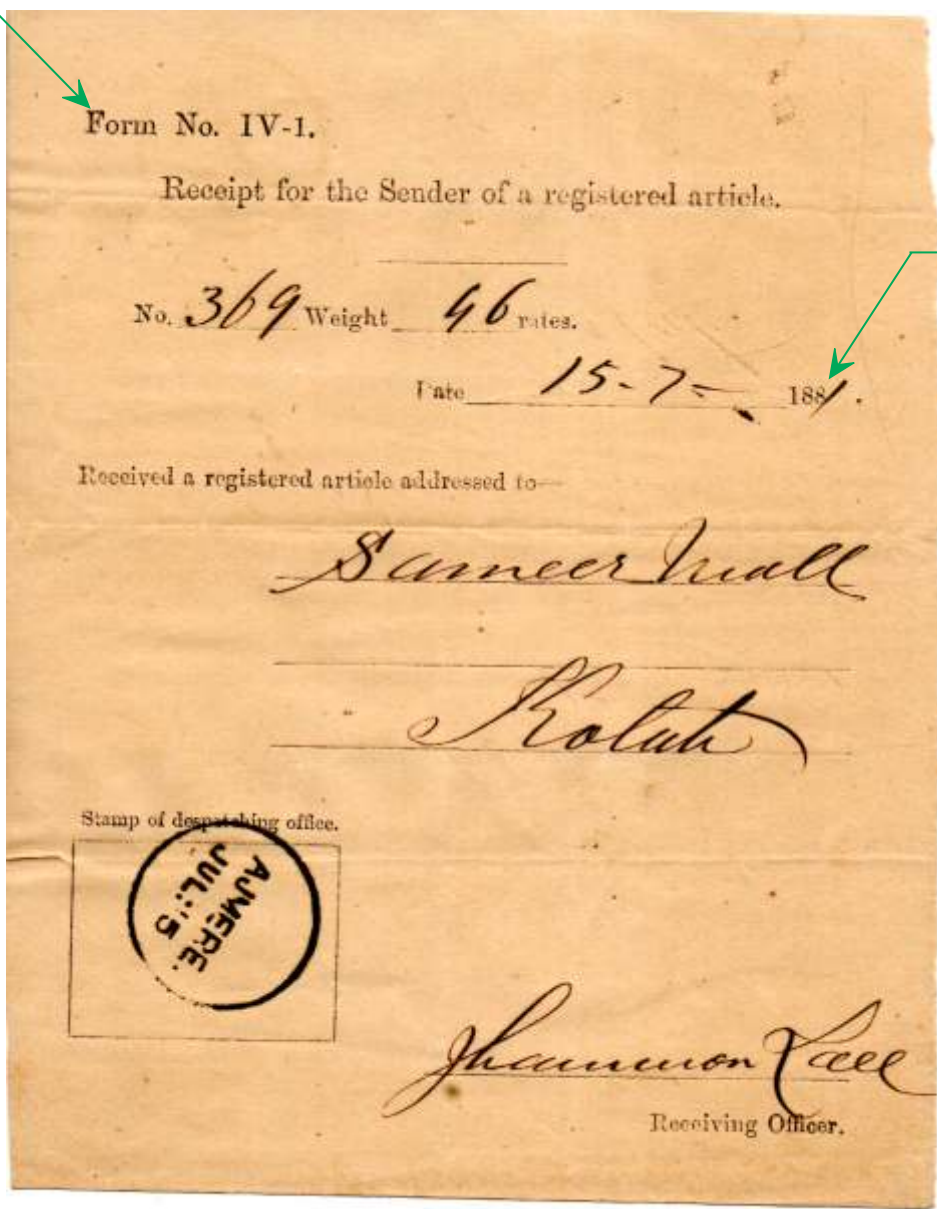 Form No. IV-1.
Receipt for the Sender of a registered article.
No. 369 Weight 46 rates.
Date 15-7- 1881.
Received a registered article addressed to—
Sameer Mall
Kotah
Stamp of despatching office.
AJMERE.
JUL:15
Lall
Receiving Officer.